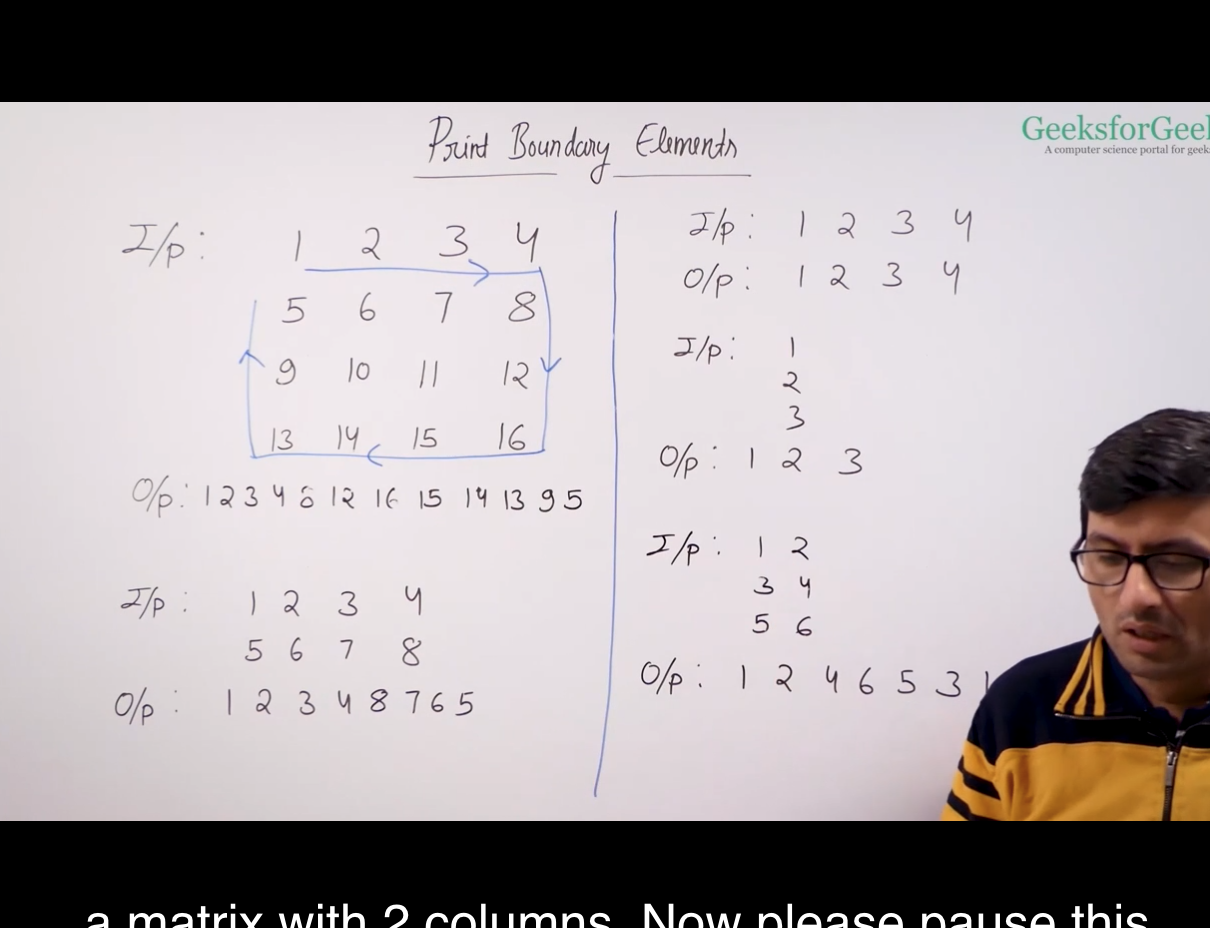 Print Boundary Elements
GeeksforGeek
A computer science portal for geeks
I/p: 1 2 3 4
5 6 7 8
9 10 11 12
13 14 15 16
O/p: 1 2 3 4 8 12 16 15 14 13 9 5
I/p: 1 2 3 4
5 6 7 8
O/p: 1 2 3 4 8 7 6 5
I/p: 1 2 3 4
O/p: 1 2 3 4
I/p: 1
2
3
O/p: 1 2 3
I/p: 1 2
3 4
5 6
O/p: 1 2 4 6 5 3 1
a matrix with 2 columns. Now please pause this